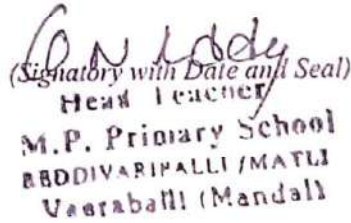 (Signatory with Date and Seal)
Head Teacher
M.P. Primary School
REDDIVARIPALLI (MATLI
Veeraballi (Mandal)